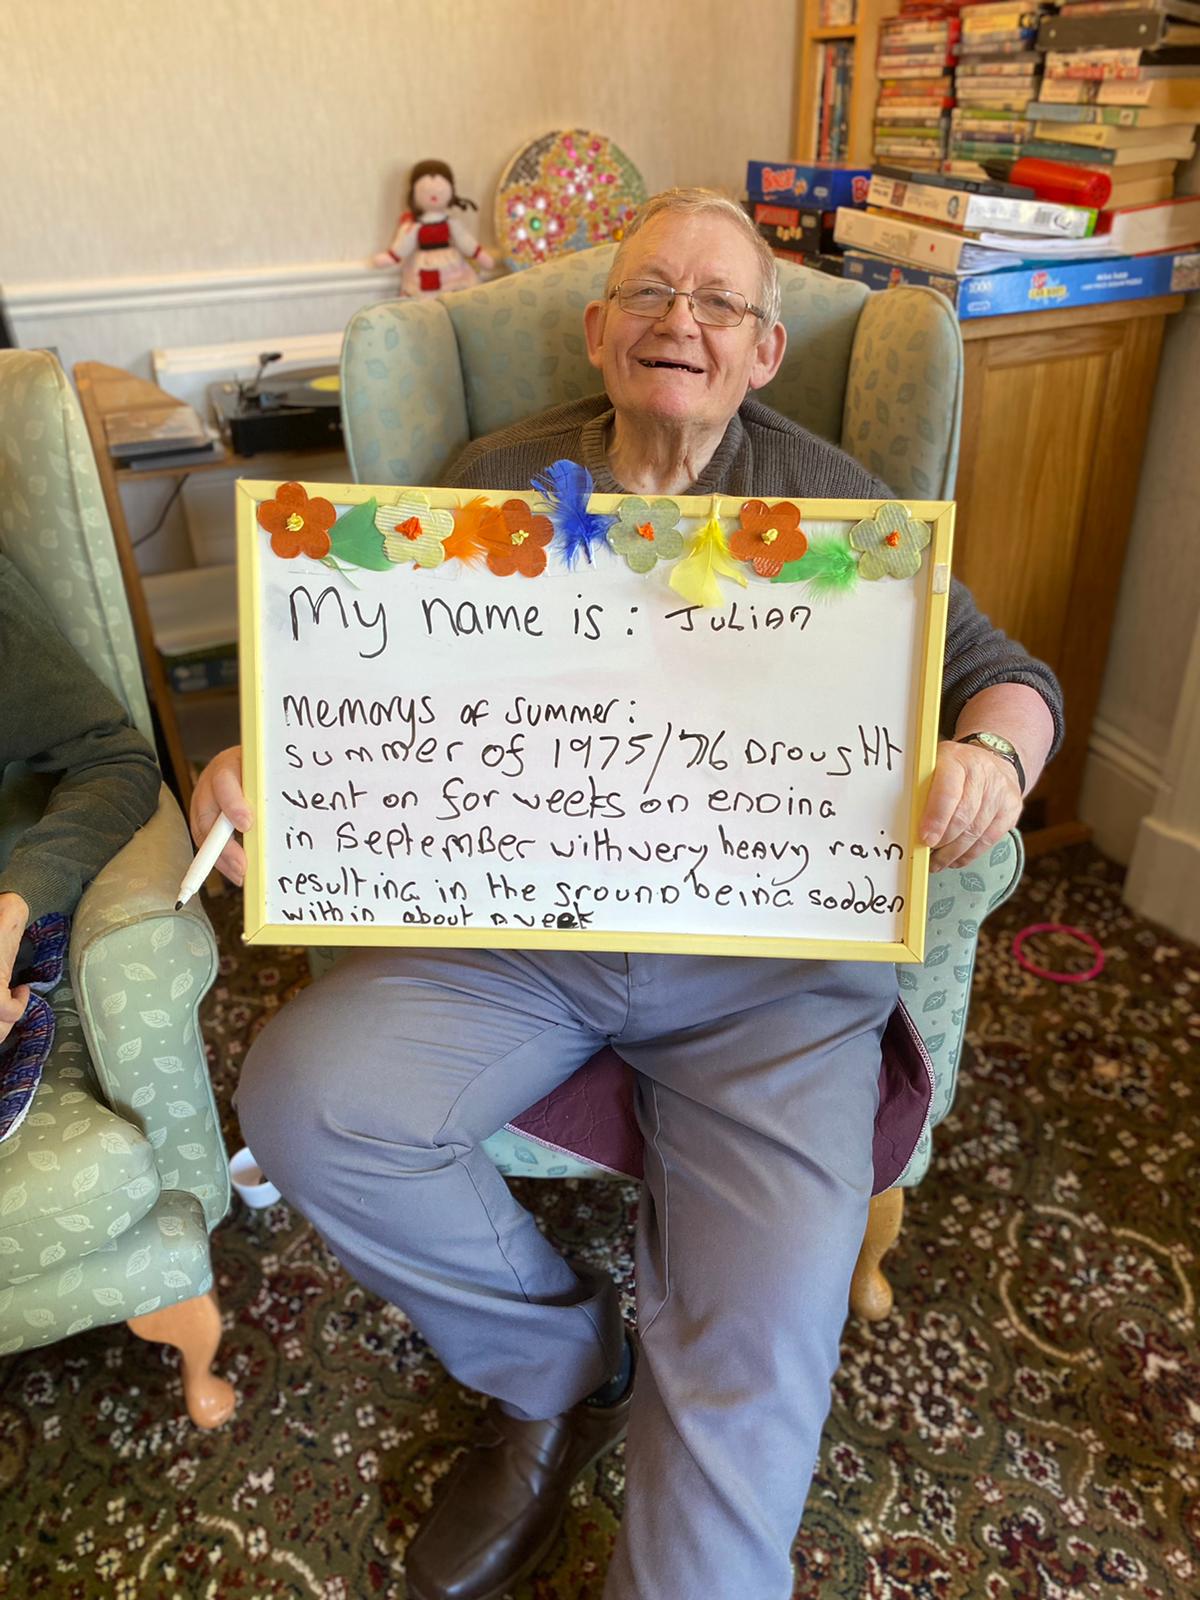 My name is: JULIAN
Memorys of summer:
summer of 1975/76 Drought
went on for weeks on ending
in September with very heavy rain
resulting in the ground being sodden
within about a week
1000